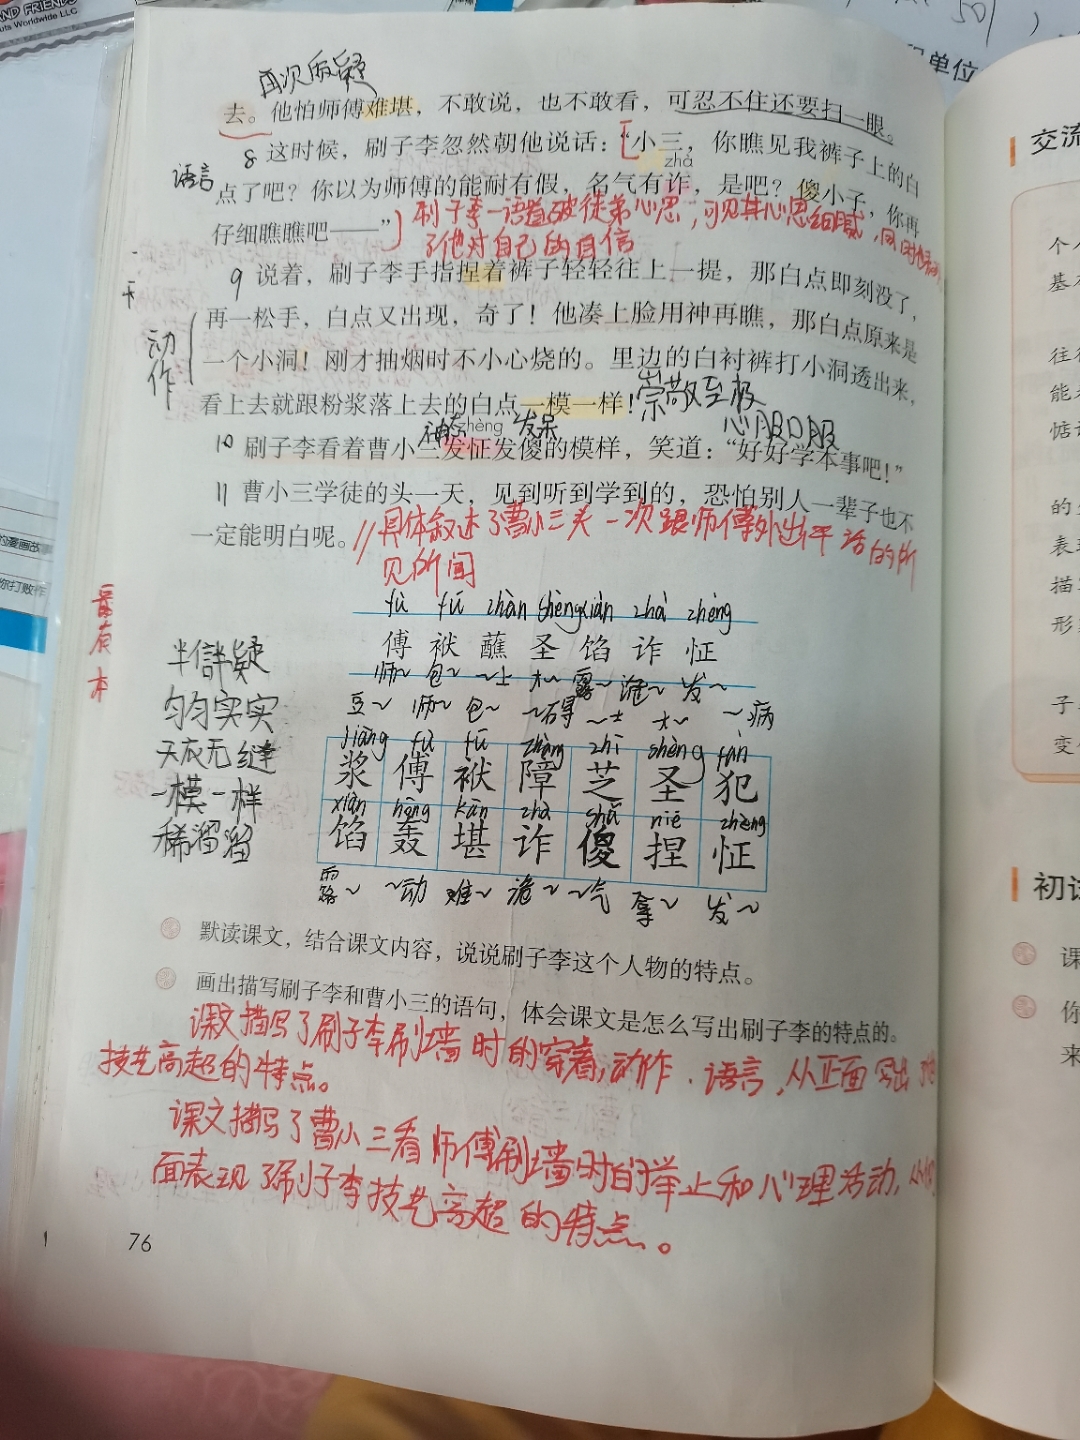 AND FRIENDS
uts Worldwide LLC
50
单位
再次质疑
去。他怕师傅难堪，不敢说，也不敢看，可忍不住还要扫一眼。
8 这时候，刷子李忽然朝他说话：“小三，你瞧见我裤子上的白
zhà
语言
点了吧？你以为师傅的能耐有假，名气有诈，是吧？傻小子，你再
仔细瞧瞧吧——”
刷子李一语道破徒弟心思，可见其心思细腻，同时也
了他对自己的自信
9 说着，刷子李手指捏着裤子轻轻往上一提，那白点即刻没了，
再一松手，白点又出现，奇了！他凑上脸用神再瞧，那白点原来是
动作
一个小洞！刚才抽烟时不小心烧的。里边的白衬裤打小洞透出来，
看上去就跟粉浆落上去的白点一模一样！
崇敬至极
心服口服
神态 zhèng 发呆
10 刷子李看着曹小三发怔发傻的模样，笑道：“好好学本事吧！”
11 曹小三学徒的头一天，见到听到学到的，恐怕别人一辈子也不
一定能明白呢。
具体叙述了曹小三头一次跟师傅外出干活的所
见所闻
fù fú zhàn shèng xiàn zhà zhèng
傅 袱 蘸 圣 馅 诈 怔
师~ 包~ ~土 大~ 露~ 诡~ 发~
豆~ 师~ 包~ ~碍 ~士 大~ ~病
jiāng fù fú zhàng zhī shèng fàn
浆 傅 袱 障 芝 圣 犯
xiàn hōng kān zhà shǎ niē zhèng
馅 轰 堪 诈 傻 捏 怔
露~ ~动 难~ 诡~ ~气 拿~ 发~
半信半疑
匀匀实实
天衣无缝
一模一样
稀溜溜
默读课文，结合课文内容，说说刷子李这个人物的特点。
画出描写刷子李和曹小三的语句，体会课文是怎么写出刷子李的特点的。
课文描写了刷子李刷墙时的穿着，动作、语言，从正面写出了他
技艺高超的特点。
课文描写了曹小三看师傅刷墙时的举止和心理活动，从侧
面表现了刷子李技艺高超的特点。
76
交流
个人
基本
往往
能
惦
的
表
描
形
子
变
初试
课
你
来